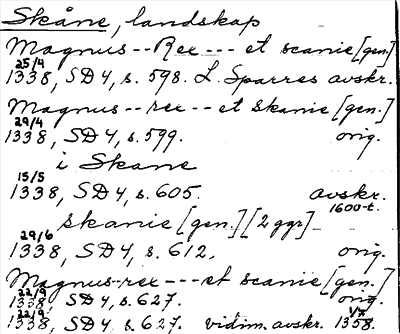 Skåne, landskap
Magnus--Rex---et scanie [gen.]
25/4
1338, SD4, s. 598. L. Sparres avskr.
Magnus--rex--et skanie [gen.]
29/4
1338, SD4, s. 599. orig.
i Skane
15/5
1338, SD4, s. 605. avskr.
1600-t.
skanie [gen.] [2 ggr]
29/6
1338, SD4, s. 612. orig.
Magnus-rex---et scanie [gen.]
22/9
1338, SD4, s. 627. orig.
22/9 1/7
1338, SD4, s. 627. vidim. avskr. 1358.